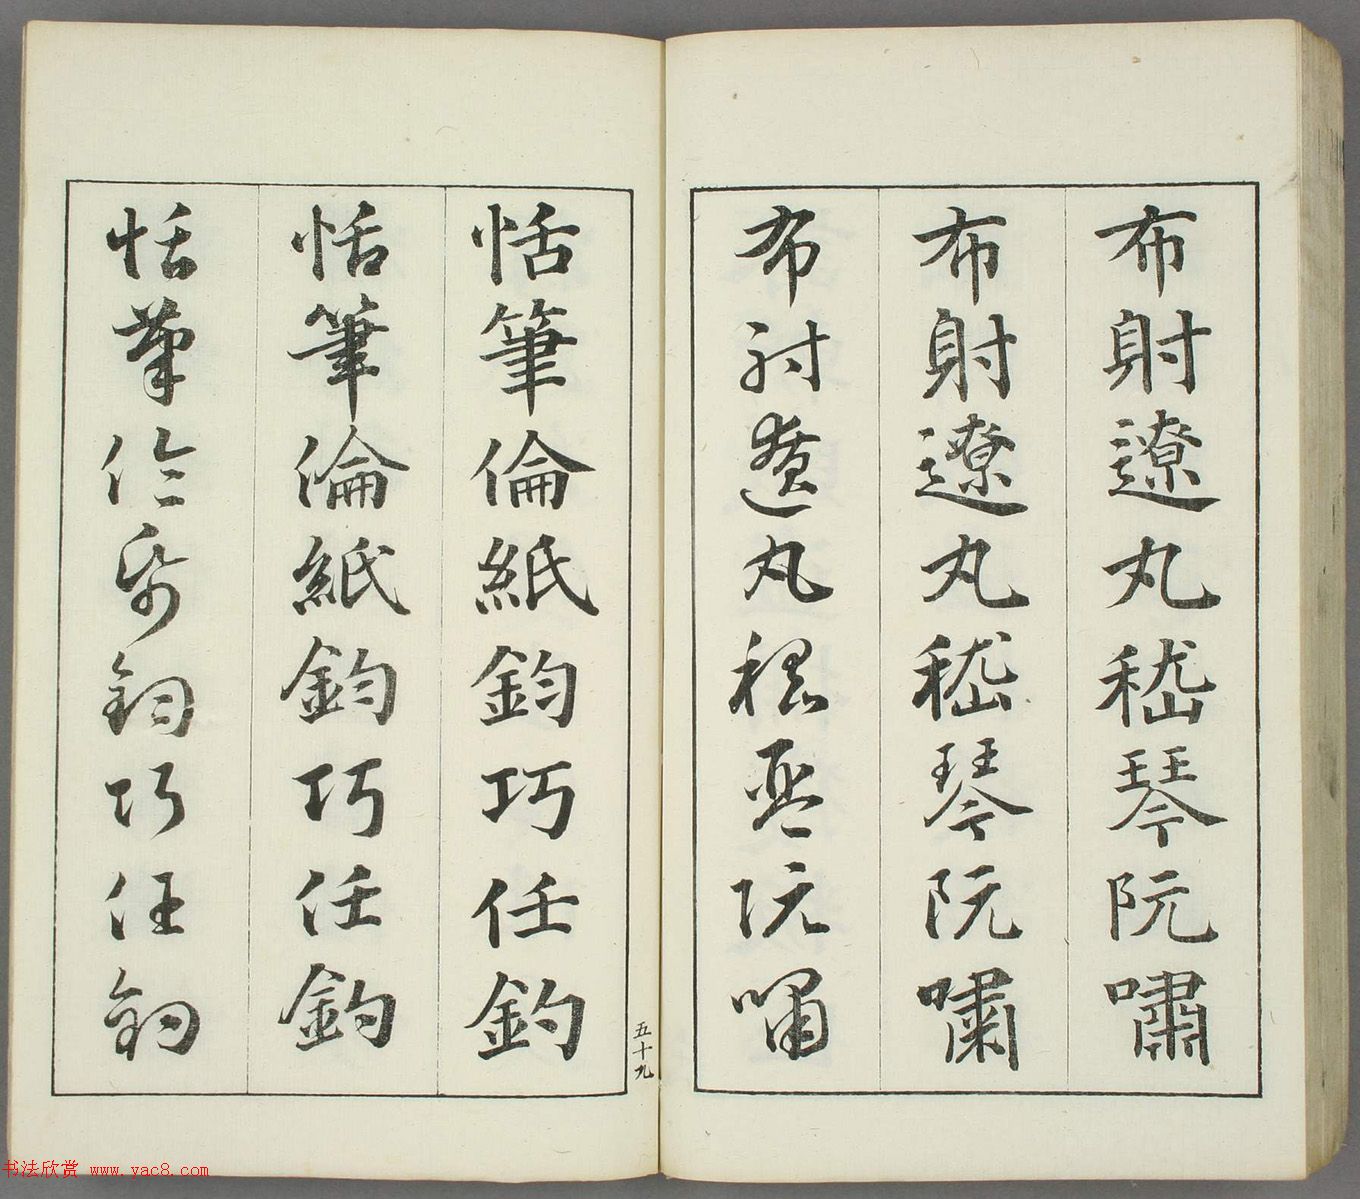 布射遼丸嵇琴阮嘯
布射遼丸嵇琴阮嘯
布射遼丸嵇琴阮嘯
恬筆倫紙鈞巧任釣
恬筆倫紙鈞巧任釣
恬筆倫紙鈞巧任釣
五十九
书法欣赏 www.yac8.com